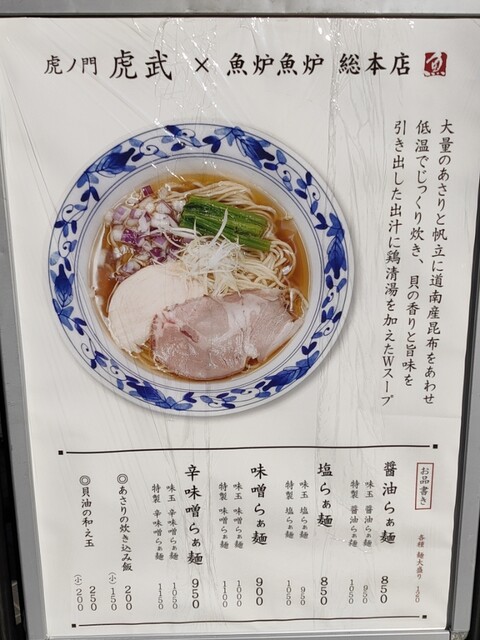 虎ノ門 虎武 × 魚炉魚炉 総本店 魚
大量のあさりと帆立に道南産昆布をあわせ
低温でじっくり炊き、貝の香りと旨味を
引き出した出汁に鶏清湯を加えたWスープ
お品書き
各種 麺大盛り 120
醤油らぁ麺 850
味玉 醤油らぁ麺 950
特製 醤油らぁ麺 1050
塩らぁ麺 850
味玉 塩らぁ麺 950
特製 塩らぁ麺 1050
味噌らぁ麺 900
味玉 味噌らぁ麺 1000
特製 味噌らぁ麺 1100
辛味噌らぁ麺 950
味玉 辛味噌らぁ麺 1050
特製 辛味噌らぁ麺 1150
◎あさりの炊き込み飯 200
(小)150
◎貝油の和え玉 250
(小)200